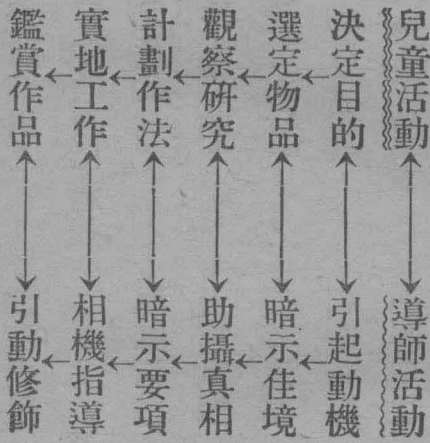 兒童活動
導師活動
決定目的
引起動機
選定物品
暗示佳境
觀察研究
助攝真相
計劃作法
暗示要項
實地工作
相機指導
鑑賞作品
引動修飾